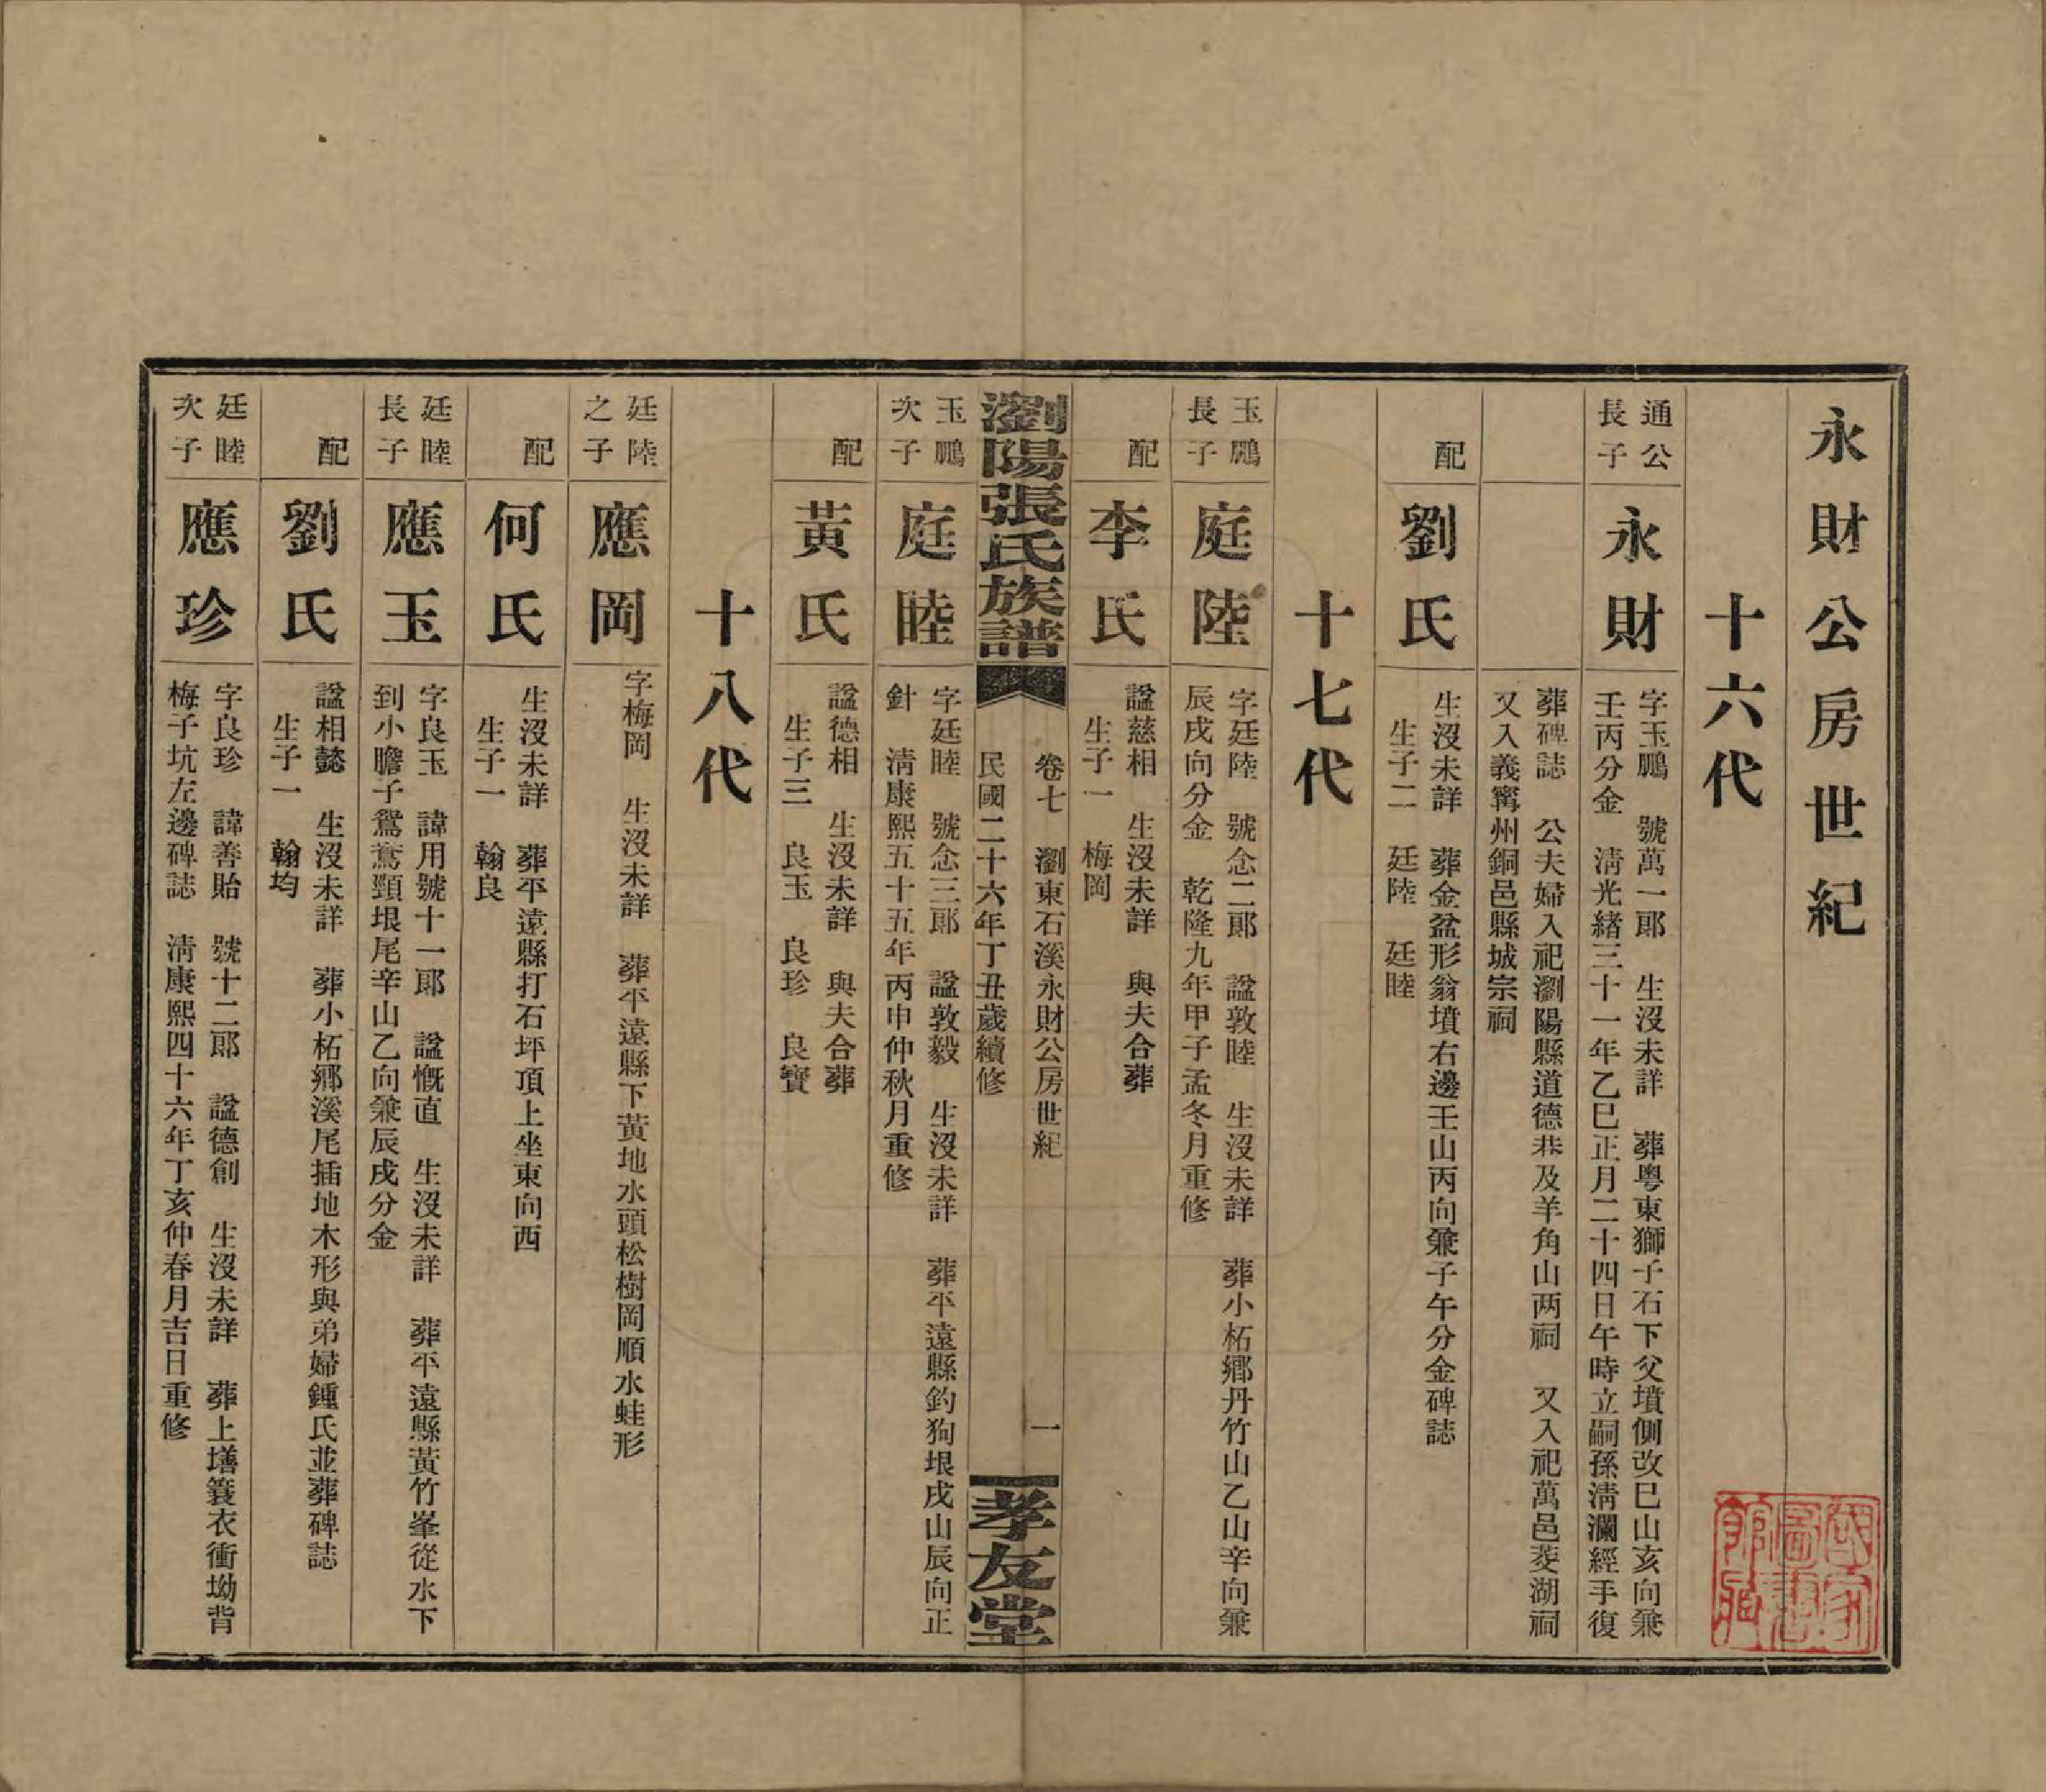 永財公房世紀
十六代
通公長子
永財
字玉鵬　號萬一郎　生沒未詳　葬粵東獅子石下父墳側改巳山亥向兼
壬丙分金　淸光緒三十一年乙巳正月二十四日午時立嗣孫淸瀾經手復
葬碑誌　公夫婦入祀瀏陽縣道德巷及羊角山两祠　又入祀萬邑菱湖祠
又入義寗州銅邑縣城宗祠
配
劉氏
生沒未詳　葬金盆形翁墳右邊壬山丙向兼子午分金碑誌
生子二　廷陸　廷睦
十七代
玉鵬長子
庭陸
字廷陸　號念二郎　諡敦睦　生沒未詳　葬小柘鄉丹竹山乙山辛向兼
辰戌向分金　乾隆九年甲子孟冬月重修
配
李氏
諡慈相　生沒未詳　與夫合葬
生子一　梅岡
瀏陽張氏族譜
卷七　瀏東石溪永財公房世紀　一
民國二十六年丁丑歲續修
孝友堂
玉鵬次子
庭睦
字廷睦　號念三郎　諡敦毅　生沒未詳　葬平遠縣釣狗垠戌山辰向正
針　淸康熙五十五年丙申仲秋月重修
配
黃氏
諡德相　生沒未詳　與夫合葬
生子三　良玉　良珍　良寶
十八代
廷陸之子
應岡
字梅岡　生沒未詳　葬平遠縣下黃地水頭松樹岡順水蛙形
配
何氏
生沒未詳　葬平遠縣打石坪頂上坐東向西
生子一　翰良
廷睦長子
應玉
字良玉　諱用號十一郎　諡慨直　生沒未詳　葬平遠縣黃竹峯從水下
到小膽子鴛鴦頸垠尾辛山乙向兼辰戌分金
配
劉氏
諡相懿　生沒未詳　葬小柘鄉溪尾插地木形與弟婦鍾氏並葬碑誌
生子一　翰均
廷睦次子
應珍
字良珍　諱善貽　號十二郎　諡德創　生沒未詳　葬上墡簑衣衝坳背
梅子坑左邊碑誌　淸康熙四十六年丁亥仲春月吉日重修
國家圖書館藏